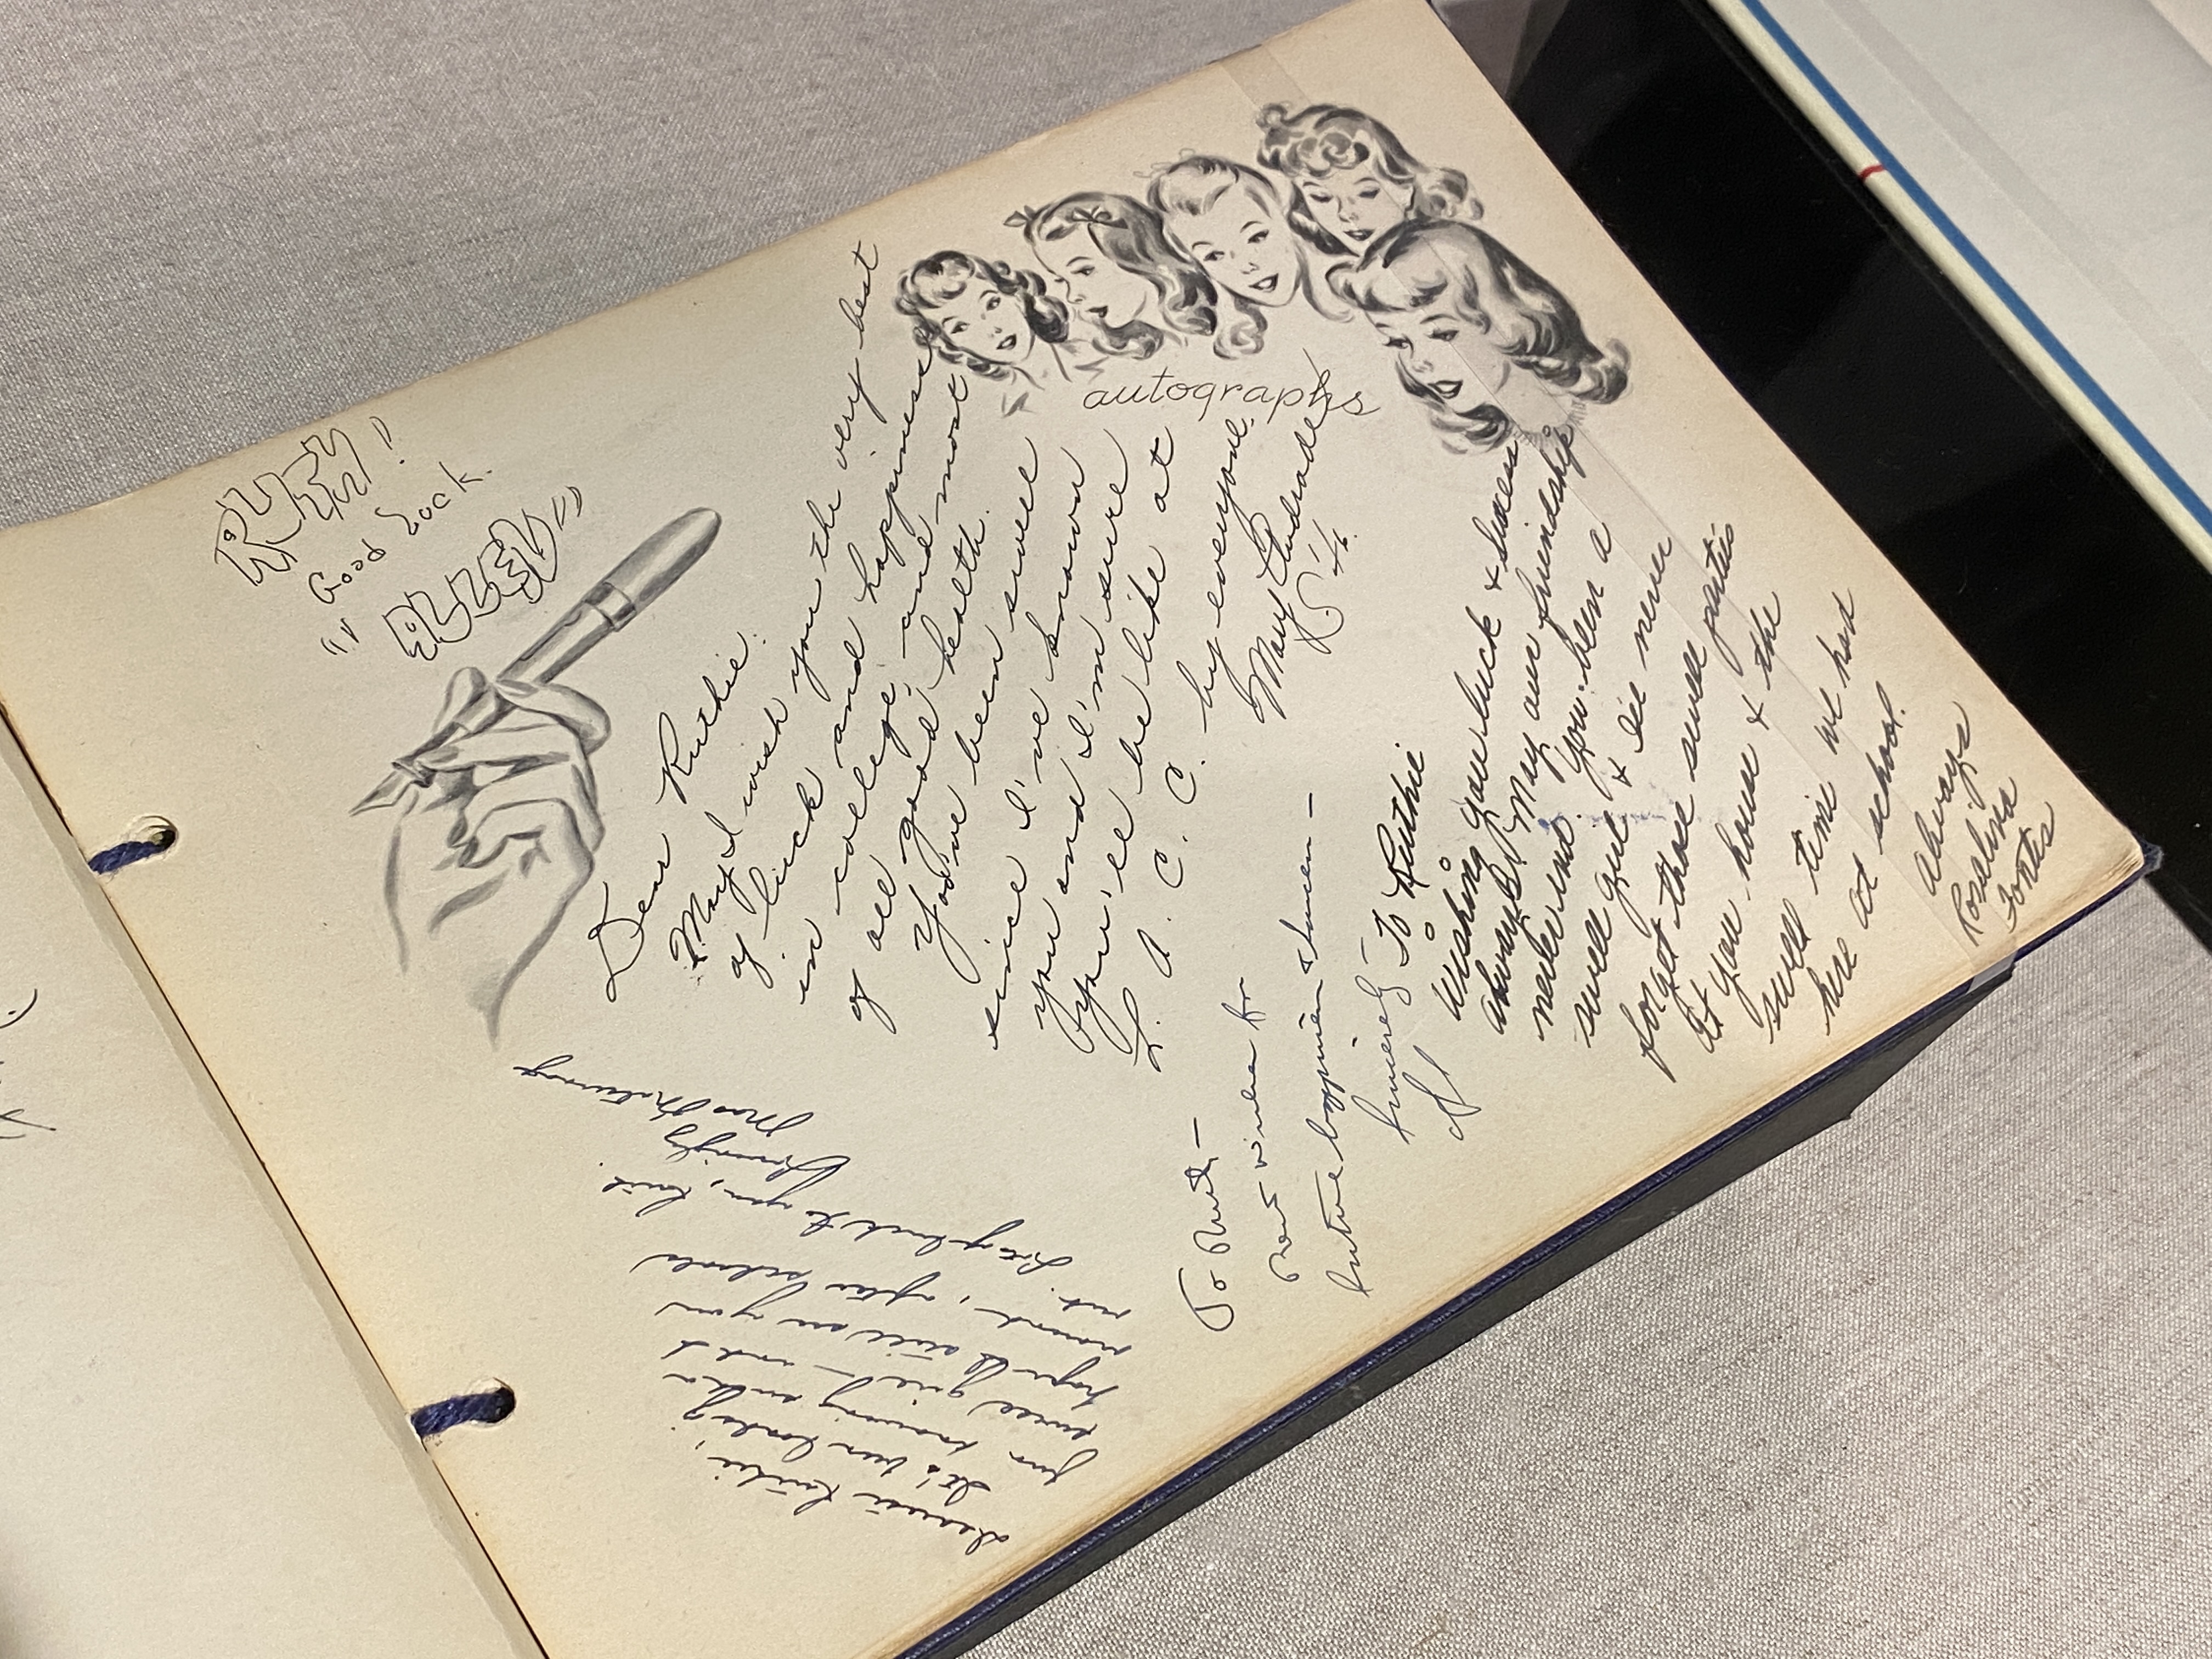 autographs
RUTH!!
Good Luck.
"ELLEN"
Dear Ruthie:
May I wish you the very best
of luck and happiness
in college, and most
of all good health.
You've been swell
since I've known
you and I'm sure
you'll be like at
L. A. C. C. by everyone.
Mary Andrade
S'46.
To Ruthie
Wishing you luck & success
always. May our friendship
never end. You been a
swell girl & I'll never
forget those swell parties
at you house & the
swell time we had
here at school.
Always
Rosalina
Fontes
To Ruth —
Best wishes for
future happiness &
Sincerely —
Al
Dearest Ruthie,
It's been lovely
knowing such a
sweet girl — and I
hope I'll still see you
around, after school's
out.
Loay luck to you, Ruth.